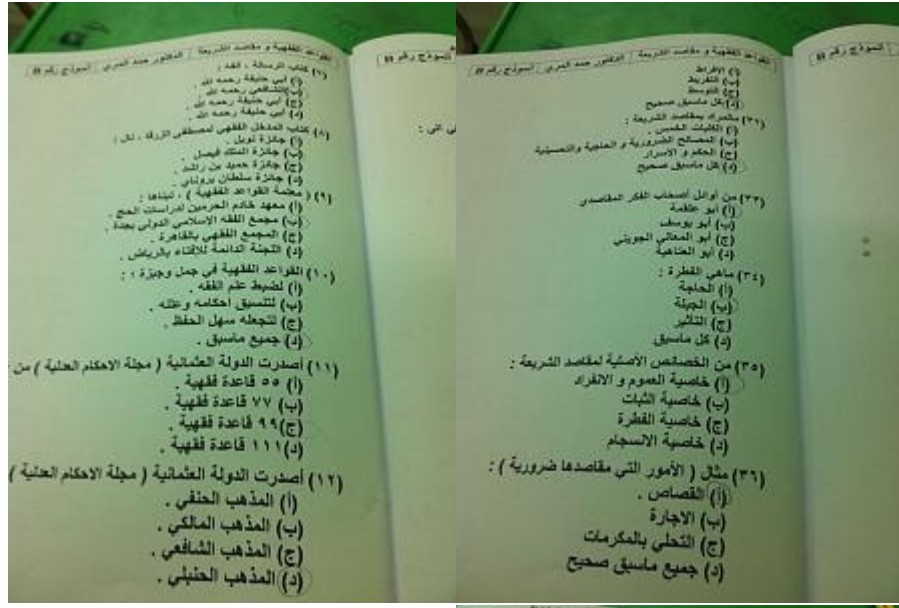 القواعد الفقهية و مقاصد الشريعة | الدكتور حمد المري | النموذج رقم B
(٧) كتاب الرسالة ، ألفه :
(أ) أبي حنيفة رحمه الله .
(ب) الشافعي رحمه الله .
(ج) أبي حنيفة رحمه الله .
(د) أبي حنيفة رحمه الله .
(٨) كتاب المدخل الفقهي لمصطفى الزرقا ، نال :
(أ) جائزة نوبل .
(ب) جائزة الملك فيصل .
(ج) جائزة حميد بن راشد .
(د) جائزة سلطان بروناي .
(٩) ( معلمة القواعد الفقهية ) ، تبناها :
(أ) معهد خادم الحرمين لدراسات الحج .
(ب) مجمع الفقه الاسلامي الدولي بجدة .
(ج) المجمع الفقهي بالقاهرة .
(د) اللجنة الدائمة للإفتاء بالرياض .
(١٠) القواعد الفقهية في جمل وجيزة ؛ :
(أ) لضبط علم الفقه .
(ب) لتنسيق احكامه وعلله .
(ج) لتجعله سهل الحفظ .
(د) جميع ماسبق .
(١١) أصدرت الدولة العثمانية ( مجلة الاحكام العدلية ) من
(أ) ٥٥ قاعدة فقهية .
(ب) ٧٧ قاعدة فقهية .
(ج) ٩٩ قاعدة فقهية .
(د) ١١١ قاعدة فقهية .
(١٢) أصدرت الدولة العثمانية ( مجلة الاحكام العدلية )
(أ) المذهب الحنفي .
(ب) المذهب المالكي .
(ج) المذهب الشافعي .
(د) المذهب الحنبلي .
النموذج رقم B
القواعد الفقهية و مقاصد الشريعة | الدكتور حمد المري | النموذج رقم B
(أ) الإفراط
(ب) التفريط
(ج) التوسط
(د) كل ماسبق صحيح
(٣٢) مالمراد بمقاصد الشريعة :
(أ) الكليات الخمس .
(ب) المصالح الضرورية و الحاجية والتحسينية
(ج) الحكم و الأسرار
(د) كل ماسبق صحيح
(٣٣) من أوائل أصحاب الفكر المقاصدي
(أ) أبو علقمة
(ب) أبو يوسف
(ج) أبو المعالي الجويني
(د) أبو العتاهية
(٣٤) ماهي الفطرة :
(أ) الحاجة
(ب) الجبلة
(ج) التأثير
(د) كل ماسبق
(٣٥) من الخصائص الأصلية لمقاصد الشريعة :
(أ) خاصية العموم و الانفراد
(ب) خاصية الثبات
(ج) خاصية الفطرة
(د) خاصية الانسجام
(٣٦) مثال ( الأمور التي مقاصدها ضرورية ) :
(أ) القصاص .
(ب) الاجارة
(ج) التحلي بالمكرمات
(د) جميع ماسبق صحيح
النموذج رقم B